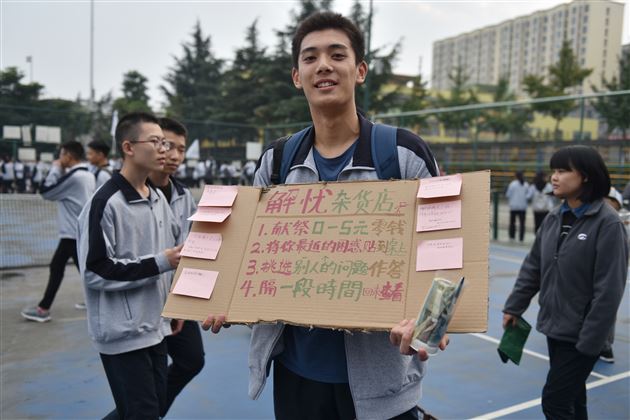 解忧杂货店
1.献祭0-5元零钱
2.将你最近的困惑贴到桌上
3.挑选别人的问题作答
4.隔一段時間回来查看